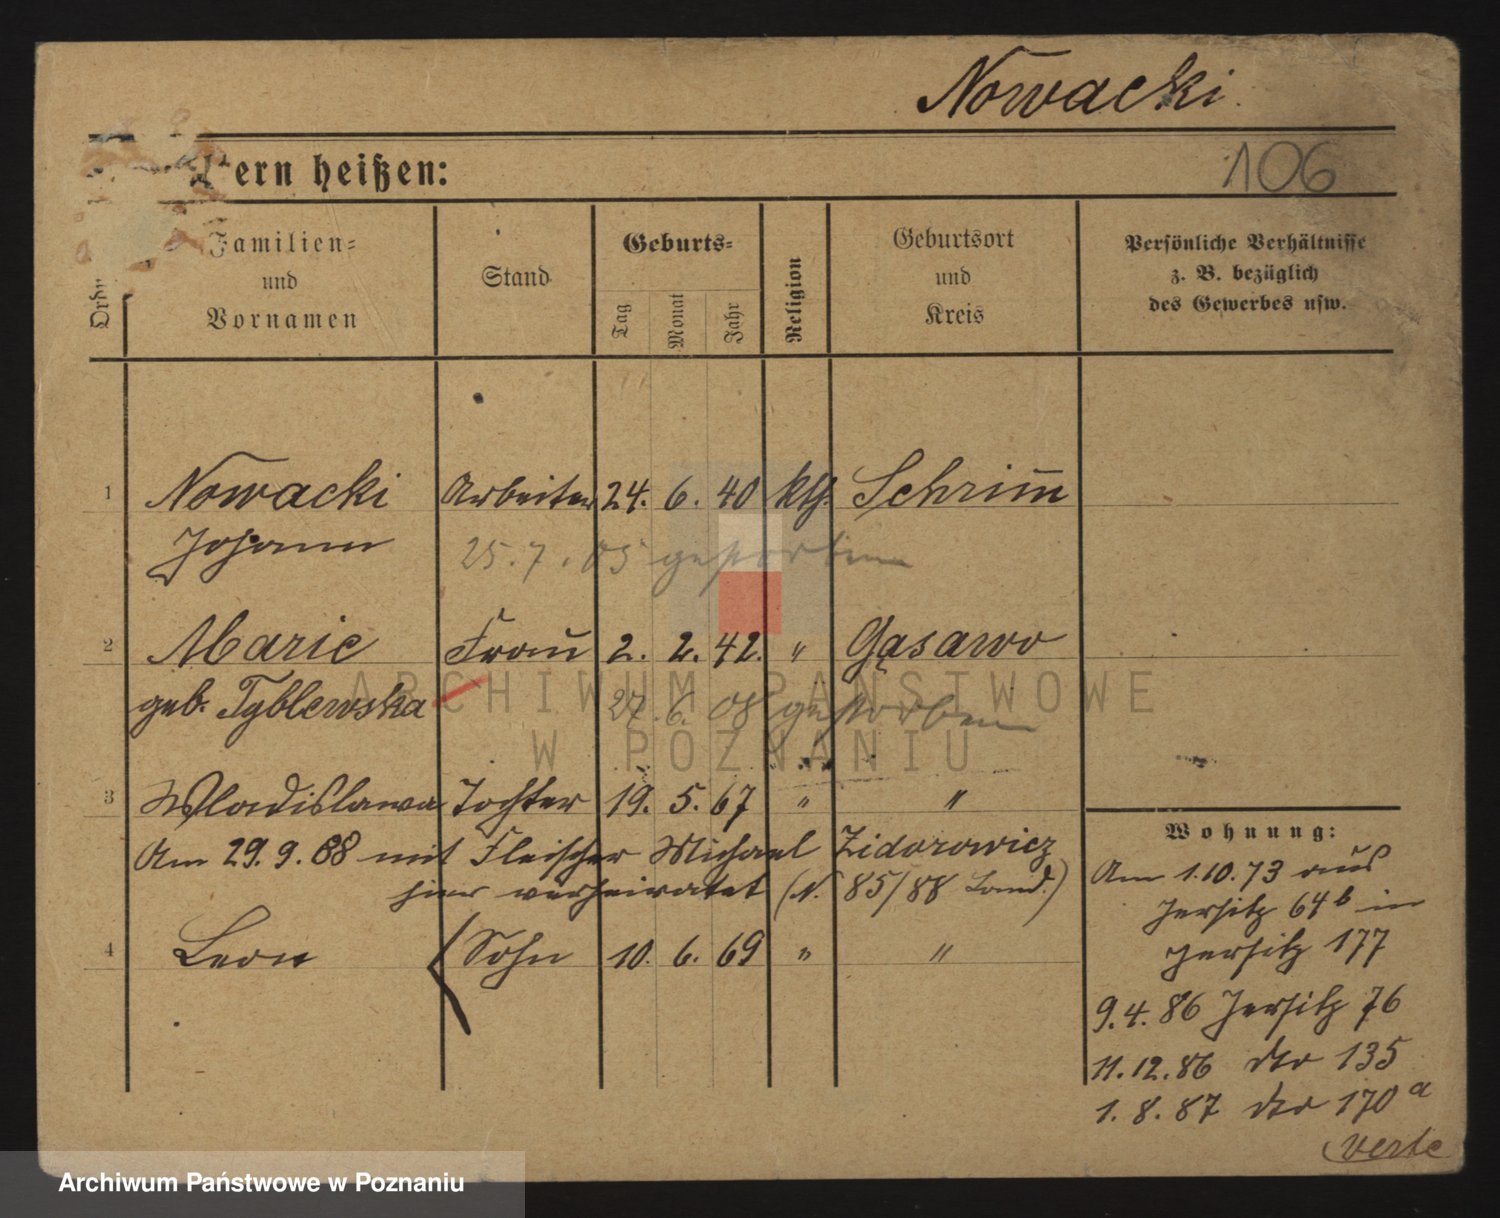 Nowacki.
tern heißen:
106
Ordn
Familien=
und
Vornamen
Stand
Geburts=
Tag
Monat
Jahr
Religion
Geburtsort
und
Kreis
Persönliche Verhältnisse
z. B. bezüglich
des Gewerbes usw.
1 Nowacki Arbeiter 24. 6. 40 ktg. Schrim̄
Johann 25. 7. 05 gestorben
2 Marie Frau 2. 2. 42. " Gąsawo
geb. Tyblewska 27. 6. 08 gestorben
3 Wladislawa Tochter 19. 5. 67 " "
Am 29. 9. 88 mit Fleischer Michael Zidorowicz
hier verheiratet (N. 85/88 Land.)
4 Leon Sohn 10. 6. 69 " "
Wohnung:
Am 1.10.73 aus
Jersitz 64b in
Jersitz 177
9.4.86 Jersitz 76
11.12.86 dto 135
1.8.87 dto 170a
verte
ARCHIWUM PAŃSTWOWE
W POZNANIU
Archiwum Państwowe w Poznaniu